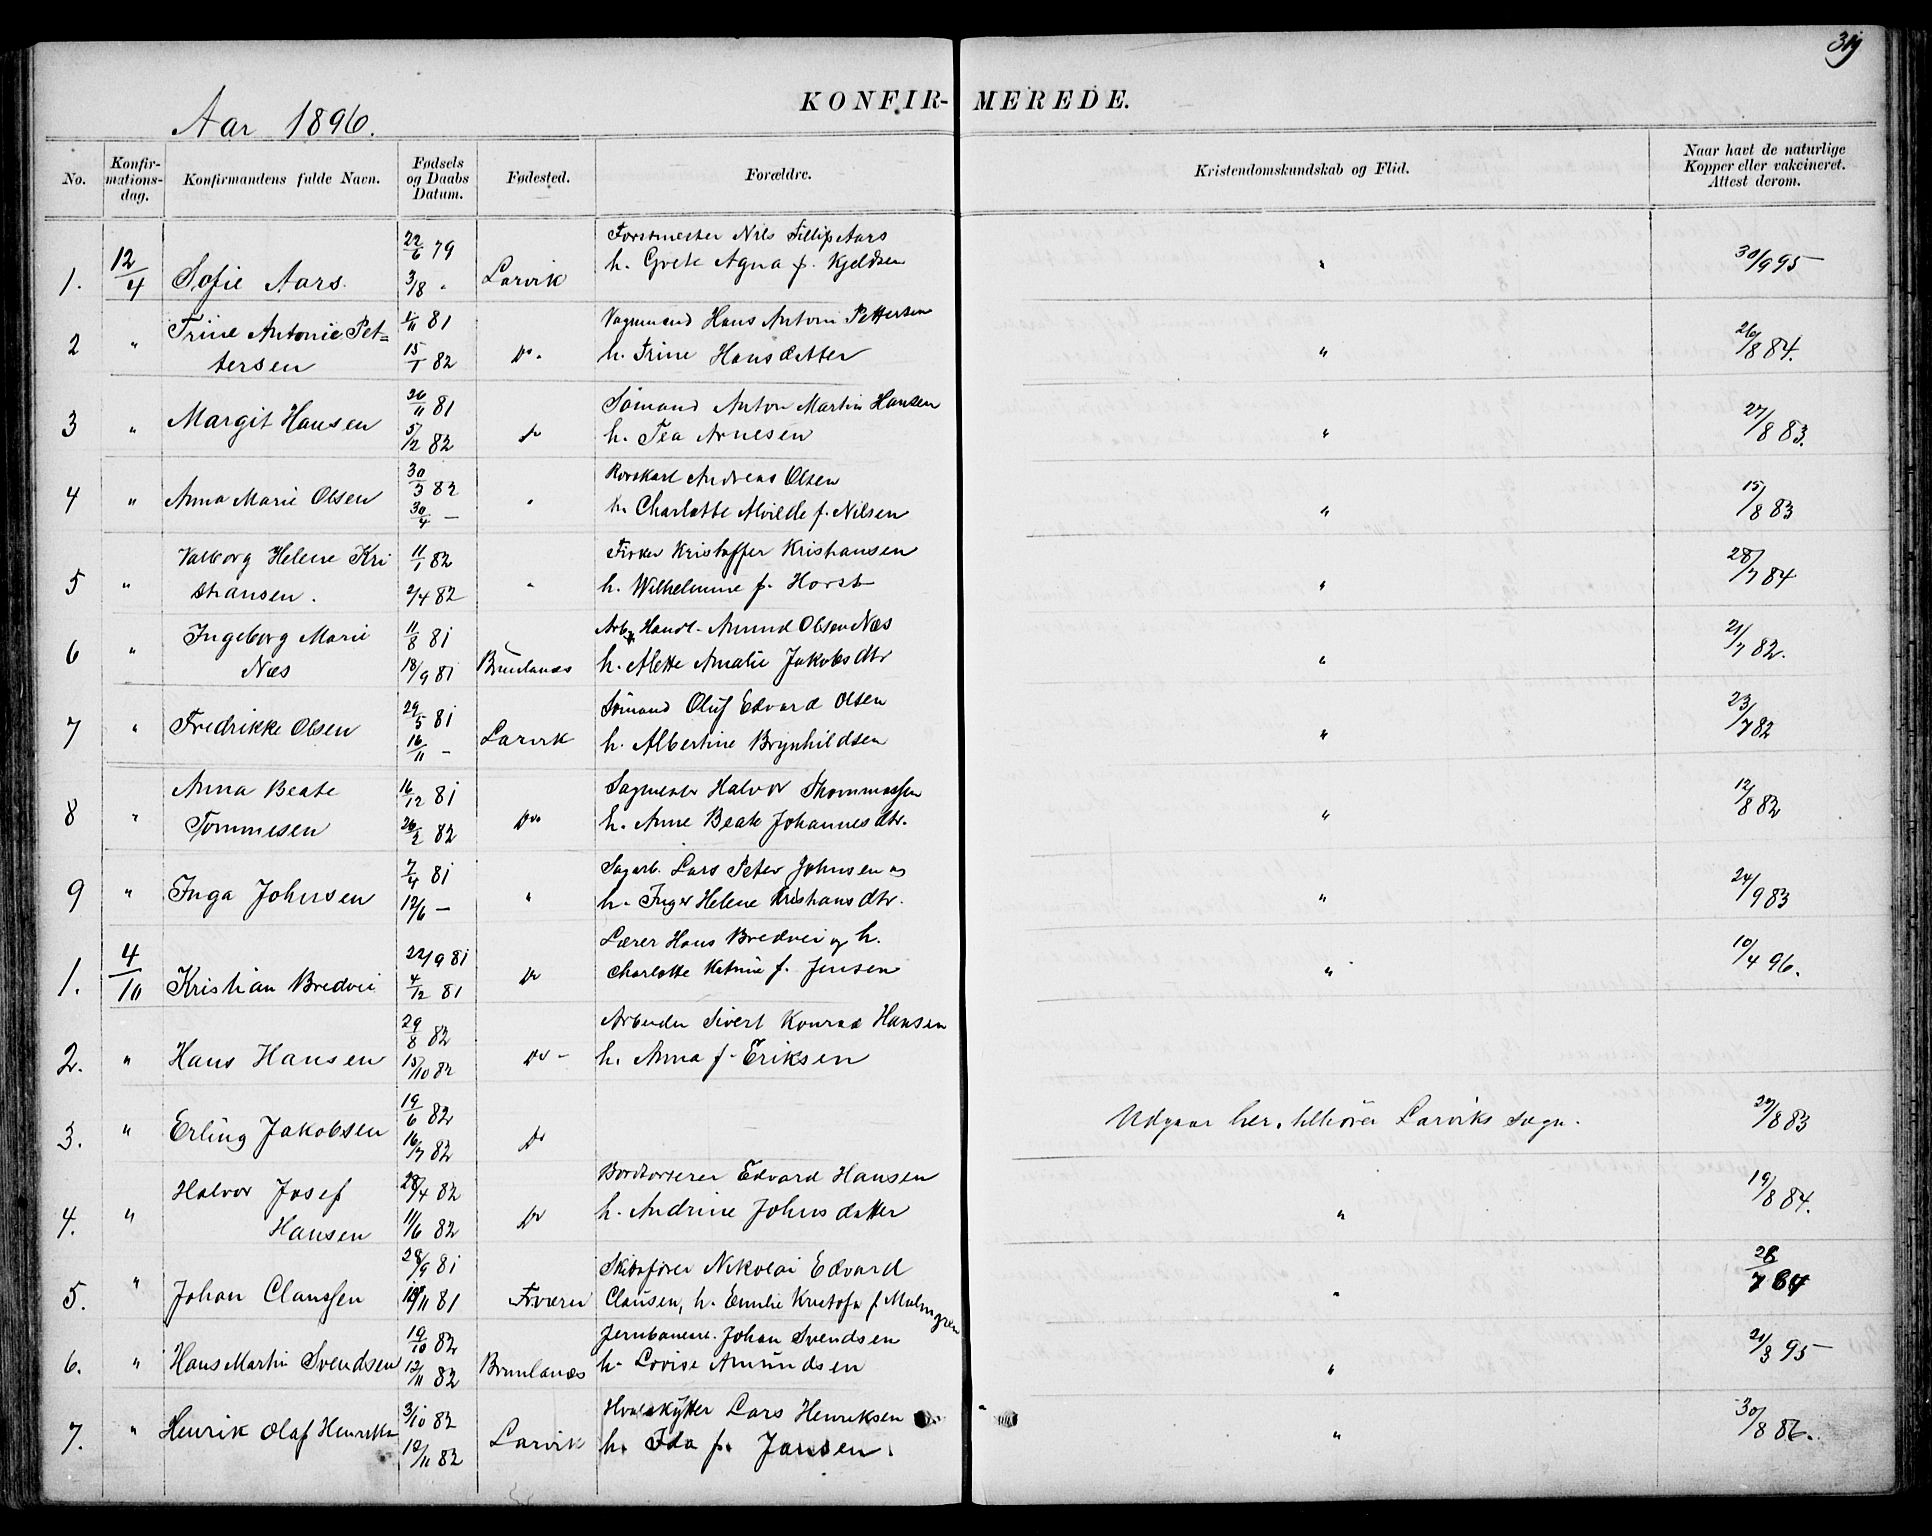 39
KONFIR- MEREDE.
Aar 1896.
No. Konfir-mations-dag. Konfirmandens fulde Navn. Fødsels og Daabs Datum. Fødested. Forældre. Kristendomskundskab og Flid. Naar havt de naturlige Kopper eller vakcineret. Attest derom.
Forstmester Nils Fillip Aars
1. 12/4 Sofie Aars. 22/6 79 3/8 " Larvik h. Grete Agna f. Kjeldsen " 30/9 95
Trine Antonie Pet= 1/11 81 Vognmand Hans Anton Pettersen
2 " tersen 15/1 82 Do. h. Trine Hansdatter " 26/8 84.
26/11 81 Sömand Anton Martin Hansen
3 " Margit Hansen 5/12 82 do h. Tea Arnesen " 27/8 83.
30/3 82 Andreas Olsen
4 " Anna Marie Olsen 30/4 — " h. Charlotte Alvilde f. Nilsen " 15/8 83
Valborg Helene Kri 11/1 82 Fisker Kristoffer Kristiansen
5 " stiansen. 2/4 82 " h. Wilhelmine f. Horst " 28/7 84
Ingeborg Marie 11/8 81 Arb. Handl. Amund Olsen Næs
6 " Næs 18/9 81 Brunlanæs h. Alette Amalie Jakobsdtr " 21/7 82.
29/5 81 Sömand Oluf Edvard Olsen
7 " Fredrikke Olsen 16/11 — Larvik h. Albertine Brynhildsen " 23/7 82
Anna Beate 16/12 81 Sagmester Halvor Thommassen
8 " Tommesen 26/2 82 Do. h. Anne Beate Johannesdtr. " 12/8 82
7/4 81 Sagarb. Lars Peter Johnsen og
9 " Inga Johnsen 12/6 — " h. Inger Helene Kristiansdtr. " 24/9 83
Lærer Hans Bredvei og h.
1. 4/10 Kristian Bredvei 22/9 81 4/12 81 Do Charlotte Katrine f. Jensen " 10/4 96.
29/8 82 Arbeider Sivert Konrad Hansen
2. " Hans Hansen 15/10 82 Do - h. Anna f. Eriksen
3. " Erling Jakobsen 19/6 82 16/7 82 Do Udgaar her, tilhörer Larviks sogn. 27/8 83
Halvor Josef 28/4 82 Edvard Hansen
4. " Hansen 11/6 82 Do h. Andrine Johnsdatter " 19/8 84.
28/9 81 Skibsförer Nikolai Edvard
5. " Johan Claussen /11 81 Tværen Clausen, h. Emilie Kristofa f. Malmgren " 28/7 84
19/10 82 Jernbanearb. Johan Svendsen
6. " Hans Martin Svendsen 12/11 82 Brunlanæs h. Lovise Amundsen " 21/3 95
3/10 82 Hvalskytter Lars Henriksen
7. " Henrik Olaf Henriksen 12/11 82 Larvik h. Ida f. Jansen. " 30/8 86.